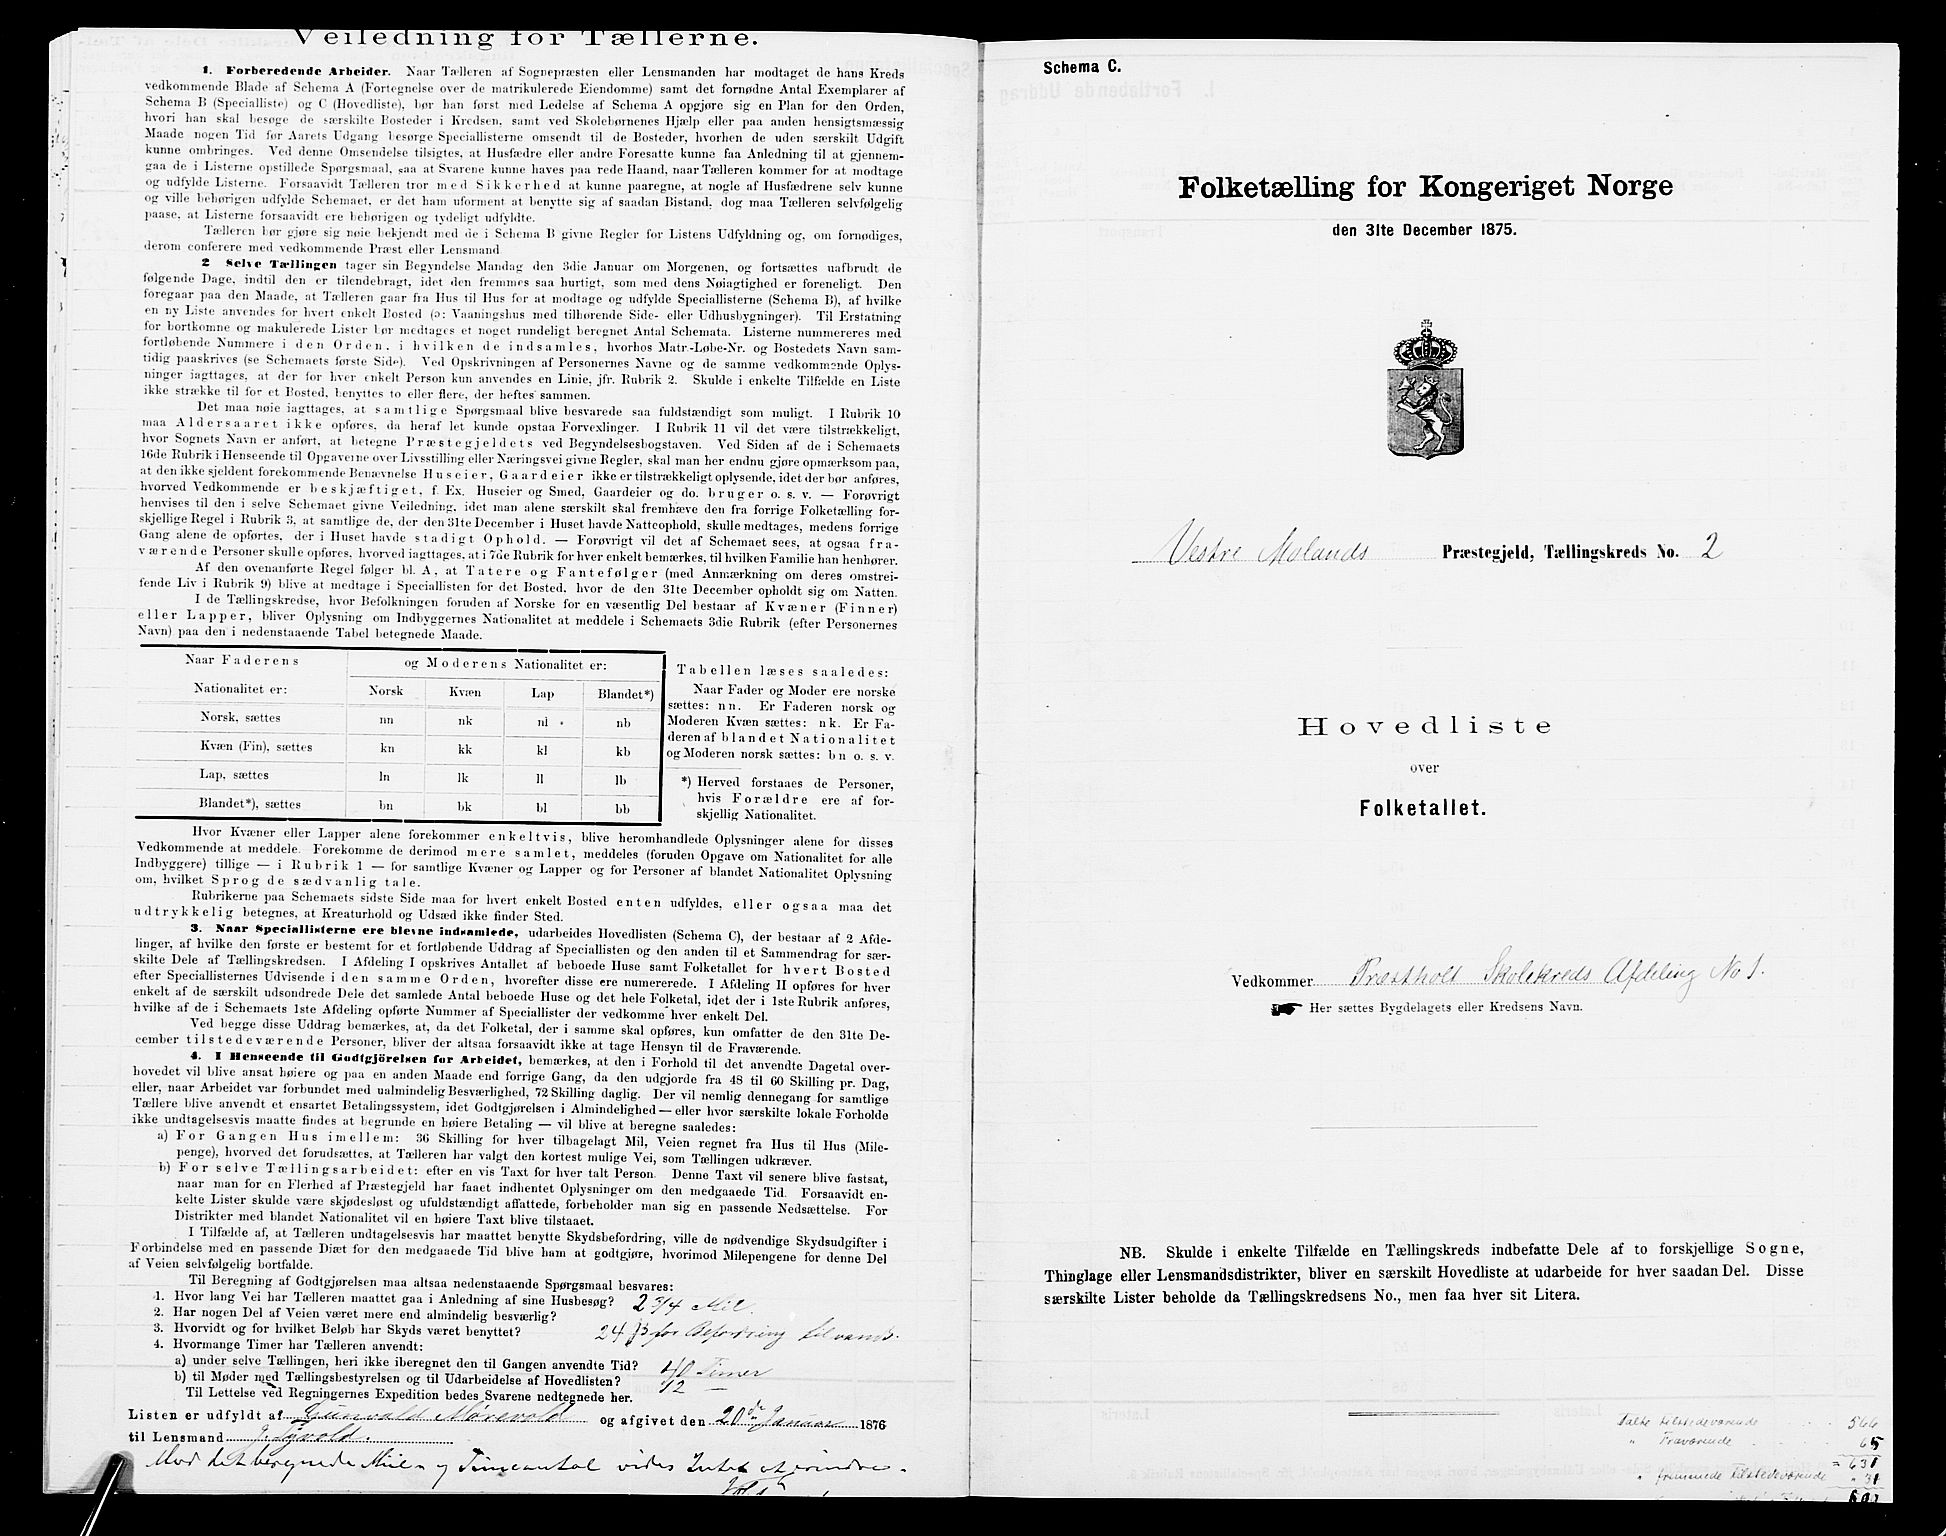 Veiledning for Tællerne.
1. Forberedende Arbeider. Naar Tælleren af Sognepræsten eller Lensmanden har modtaget de hans Kreds
vedkommende Blade af Schema A (Fortegnelse over de matrikulerede Eiendomme) samt det fornødne Antal Exemplarer af
Schema B (Specialliste) og C (Hovedliste), bør han først med Ledelse af Schema A opgjøre sig en Plan for den Orden,
hvori han skal besøge de særskilte Bosteder i Kredsen, samt ved Skolebørnenes Hjælp eller paa anden hensigtsmæssig
Maade nogen Tid før Aarets Udgang besørge Speciallisterne omsendt til de Bosteder, hvorhen de uden særskilt Udgift
kunne ombringes. Ved denne Omsendelse tilsigtes, at Husfædre eller andre Foresatte kunne faa Anledning til at gjennem-
gaa de i Listerne opstillede Spørgsmaal, saa at Svarene kunne haves paa rede Haand, naar Tælleren kommer for at modtage
og udfylde Listerne. Forsaavidt Tælleren tror med Sikkerhed at kunne paaregne, at nogle af Husfædrene selv kunne
og ville behørigen udfylde Schemaet, er det ham uforment at benytte sig af saadan Bistand, dog maa Tælleren selvfølgelig
paase, at Listerne forsaavidt ere behørigen og tydeligt udfyldte.
Tælleren bør gjøre sig nøie bekjendt med de i Schema B givne Regler for Listens Udfyldning og, om fornødiges,
derom conferere med vedkommende Præst eller Lensmand.
2 Selve Tællingen tager sin Begyndelse Mandag den 3die Januar om Morgenen, og fortsættes uafbrudt de
følgende Dage, indtil den er tilendebragt, idet den fremmes saa hurtigt, som med dens Nøiagtighed er foreneligt. Den
foregaar paa den Maade, at Tælleren gaar fra Hus til Hus for at modtage og udfylde Speciallisterne (Schema B), af hvilke
en ny Liste anvendes for hvert enkelt Bosted (ɔ: Vaaningshus med tilhørende Side- eller Udhusbygninger). Til Erstatning
for bortkomne og makulerede Lister bør medtages et noget rundeligt beregnet Antal Schemata. Listerne nummereres med
fortløbende Nummere i den Orden, i hvilken de indsamles, hvorhos Matr.-Løbe-Nr. og Bostedets Navn sam-
tidig paaskrives (se Schemaets første Side). Ved Opskrivningen af Personernes Navne og de samme vedkommende Oplys-
ninger iagttages, at der for hver enkelt Person kun anvendes en Linie, jfr. Rubrik 2. Skulde i enkelte Tilfælde en Liste
ikke strække til for et Bosted, benyttes to eller flere, der heftes sammen.
Det maa nøie iagttages, at samtlige Spørgsmaal blive besvarede saa fuldstændigt som muligt. I Rubrik 10
maa Aldersaaret ikke opføres, da heraf let kunde opstaa Forvexlinger. I Rubrik 11 vil det være tilstrækkeligt,
hvor Sognets Navn er anført, at betegne Præstegjeldets ved Begyndelsesbogstaven. Ved Siden af de i Schemaets
16de Rubrik i Henseende til Opgaverne over Livsstilling eller Næringsvei givne Regler, skal man her endnu gjøre opmærksom paa,
at den ikke sjeldent forekommende Benævnelse Huseier, Gaardeier ikke er tilstrækkeligt oplysende, idet der bør anføres,
hvorved Vedkommende er beskjæftiget, f. Ex. Huseier og Smed, Gaardeier og do. bruger o. s. v. — Forøvrigt
henvises til den i selve Schemaet givne Veiledning, idet man alene særskilt skal fremhæve den fra forrige Folketælling for-
skjellige Regel i Rubrik 3, at samtlige de, der den 31te December i Huset havde Natteophold, skulle medtages, medens forrige
Gang alene de opførtes, der i Huset havde stadigt Ophold. — Forøvrigt vil det af Schemaet sees, at ogsaa fra-
værende Personer skulle opføres, hvorved iagttages, at i 7de Rubrik for hver enkelt bemærkes, til hvilken Familie han henhører.
Af den ovenanførte Regel følger bl. A, at Tatere og Fantefølger (med Anmærkning om deres omstrei-
fende Liv i Rubrik 9) blive at medtage i Speciallisten for det Bosted, hvor de den 31te December opholdt sig om Natten.
I de Tællingskredse, hvor Befolkningen foruden af Norske for en væsentlig Del bestaar af Kvæner (Finner)
eller Lapper, bliver Oplysning om Indbyggernes Nationalitet at meddele i Schemaets 3die Rubrik (efter Personernes
Navn) paa den i nedenstaaende Tabel betegnede Maade.
Naar Faderens og Moderens Nationalitet er:
Nationalitet er: Norsk Kvæn Lap Blandet*)
Norsk, sættes nn nk nl nb
Kvæn (Fin), sættes kn kk kl kb
Lap, sættes ln lk ll lb
Blandet*), sættes bn bk bl bb
Tabellen læses saaledes:
Naar Fader og Moder ere norske
sættes: nn. Er Faderen norsk og
Moderen Kvæn sættes: nk. Er Fa-
deren af blandet Nationalitet
og Moderen norsk sættes: bn o. s. v.
*) Herved forstaaes de Personer,
hvis Forældre ere af for-
skjellig Nationalitet.
Hvor Kvæner eller Lapper alene forekommer enkeltvis, blive heromhandlede Oplysninger alene for disses
Vedkommende at meddele. Forekomme de derimod mere samlet, meddeles (foruden Opgave om Nationalitet for alle
Indbyggere) tillige — i Rubrik 1 — for samtlige Kvæner og Lapper og for Personer af blandet Nationalitet Oplysning
om, hvilket Sprog de sædvanlig tale.
Rubrikerne paa Schemaets sidste Side maa for hvert enkelt Bosted enten udfyldes, eller ogsaa maa det
udtrykkelig betegnes, at Kreaturhold og Udsæd ikke finder Sted.
3. Naar Speciallisterne ere blevne indsamlede, udarbeides Hovedlisten (Schema C), der bestaar af 2 Afde-
linger, af hvilke den første er bestemt for et fortløbende Uddrag af Speciallisten og den anden til et Sammendrag for sær-
skilte Dele af Tællingskredsen. I Afdeling I opskrives Antallet af beboede Huse samt Folketallet for hvert Bosted
efter Speciallisternes Udvisende i den samme Orden, hvorefter disse ere numererede. I Afdeling II opføres for hver
enkelt af de særskilt udsondrede Dele det samlede Antal beboede Huse og det hele Folketal, idet der i 1ste Rubrik anføres,
hvilke af de i Schemaets 1ste Afdeling opførte Nummer af Speciallister der vedkomme hver enkelt Del.
Ved begge disse Uddrag bemærkes, at, da det Folketal, der i samme skal opføres, kun omfatter de den 31te De-
cember tilstedeværende Personer, bliver der altsaa forsaavidt ikke at tage Hensyn til de Fraværende.
4. I Henseende til Godtgjörelsen for Arbeidet, bemærkes, at den i Forhold til det anvendte Dagetal over-
hovedet vil blive ansat høiere og paa en anden Maade end forrige Gang, da den udgjorde fra 48 til 60 Skilling pr. Dag,
eller, naar Arbeidet var forbundet med ualmindelig Besværlighed, 72 Skilling daglig. Der vil nemlig dennegang for samtlige
Tællere blive anvendt et ensartet Betalingssystem, idet Godtgjørelsen i Almindelighed — eller hvor særskilte lokale Forholde
ikke undtagelsesvis maatte findes at begrunde en høiere Betaling — vil blive at beregne saaledes:
a) For Gangen Hus imellem: 36 Skilling for hver tilbagelagt Mil, Veien regnet fra Hus til Hus (Mile-
penge), hvorved det forudsættes, at Tælleren har valgt den kortest mulige Vei, som Tællingen udkræver.
b) For selve Tællingsarbeidet: efter en vis Taxt for hver talt Person. Denne Taxt vil senere blive fastsat,
naar man for en Flerhed af Præstegjeld har faaet indhentet Oplysninger om den medgaaede Tid. Forsaavidt en-
kelte Lister skulde være skjødesløst og ufuldstændigt affattede, forbeholder man sig en passende Nedsættelse. For
Distrikter med blandet Nationalitet vil en høiere Taxt blive tilstaaet.
I Tilfælde af, at Tælleren undtagelsesvis har maattet benytte Skydsbefordring, ville de nødvendige Skydsudgifter i
Forbindelse med en passende Diæt for den medgaaede Tid blive ham at godtgjøre, hvorimod Milepengene for denne Del
af Veien selvfølgelig bortfalde.
Til Beregning af Godtgjørelsen maa altsaa nedenstaaende Spørgsmaal besvares:
1. Hvor lang Vei har Tælleren maattet gaa i Anledning af sine Husbesøg? 2 3/4 Mil.
2. Har nogen Del af Veien været mere end almindelig besværlig?
3. Hvorvidt og for hvilket Beløb har Skyds været benyttet? 24 ß for Befordring tilvands.
4. Hvormange Timer har Tælleren anvendt:
a) under selve Tællingen, heri ikke iberegnet den til Gangen anvendte Tid? 40 Timer
b) til Møder med Tællingsbestyrelsen og til Udarbeidelse af Hovedlisten? 12 —
Til Lettelse ved Regningernes Expedition bedes Svarene nedtegnede her.
Listen er udfyldt af Gunvald Mørevold og afgivet den 20de Januar 1876
til Lensmand
Mod det beregnede Mile- og Timeantal vides Intet at erindre.
Schema C.
Folketælling for Kongeriget Norge
den 31te December 1875.
Vestre Molands Præstegjeld, Tællingskreds No. 2
Hovedliste
over
Folketallet.
Vedkommer Træstholt Skolekreds Afdeling No 1.
Her sættes Bygdelagets eller Kredsens Navn.
NB. Skulde i enkelte Tilfælde en Tællingskreds indbefatte Dele af to forskjellige Sogne,
Thinglage eller Lensmandsdistrikter, bliver en særskilt Hovedliste at udarbeide for hver saadan Del. Disse
særskilte Lister beholde da Tællingskredsens No., men faa hver sit Litera.
Talte tilstedeværende 566
" Fraværende 65
= 631
" fremmede tilstedeværende " 31